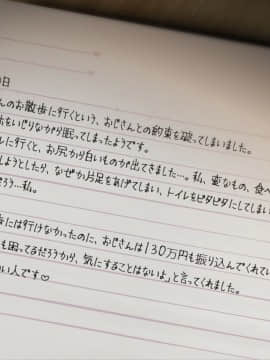 日
んのお散歩に行くという、おじさんとの約束を破ってしまいました。
をいじりながら眠ってしまったようです。
レに行くと、お尻から白いものが出てきました…。私、変なもの、食べ
しようとしたり、なぜか片足をあげてしまい、トイレをビタビタにしてしまい
ろう…私。
歩には行けなかったのに、おじさんは130万円も振り込んでくれてい
も困ってるだろうから、気にすることはないよ」と言ってくれました。
い人です♡